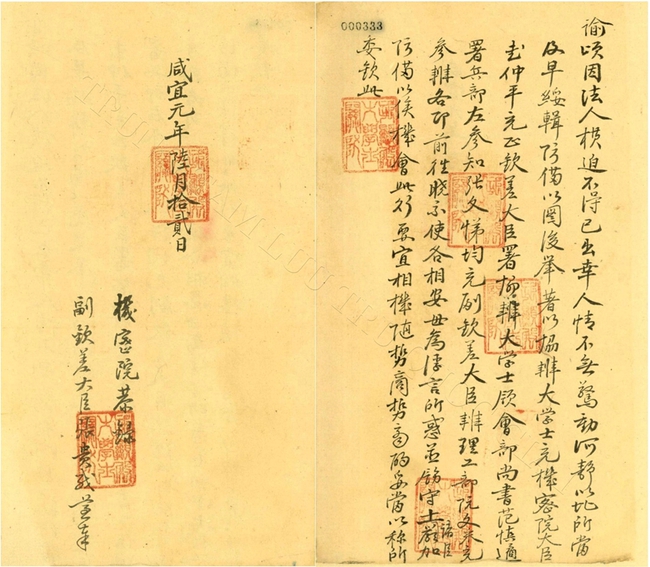 000333
諭頃因法人横迫不得已出幸人情不無驚動河静以北所當
及早綏輯防備以圖後舉著以協辦大学士充機密院大臣
武仲平充正欽差大臣署協辦大学士領會部尚書范慎遹
署兵部左参知張文悌均充副欽差大臣辦理工部阮文
参辦各卽前往曉示使各相安毋為浮言所惑並飭守土諸臣嚴加
防備以俟機會此行要宜相機随勢商酌妥當以称所
委欽此
咸宜元年陸月拾貳日
機密院恭錄
副欽差大臣張